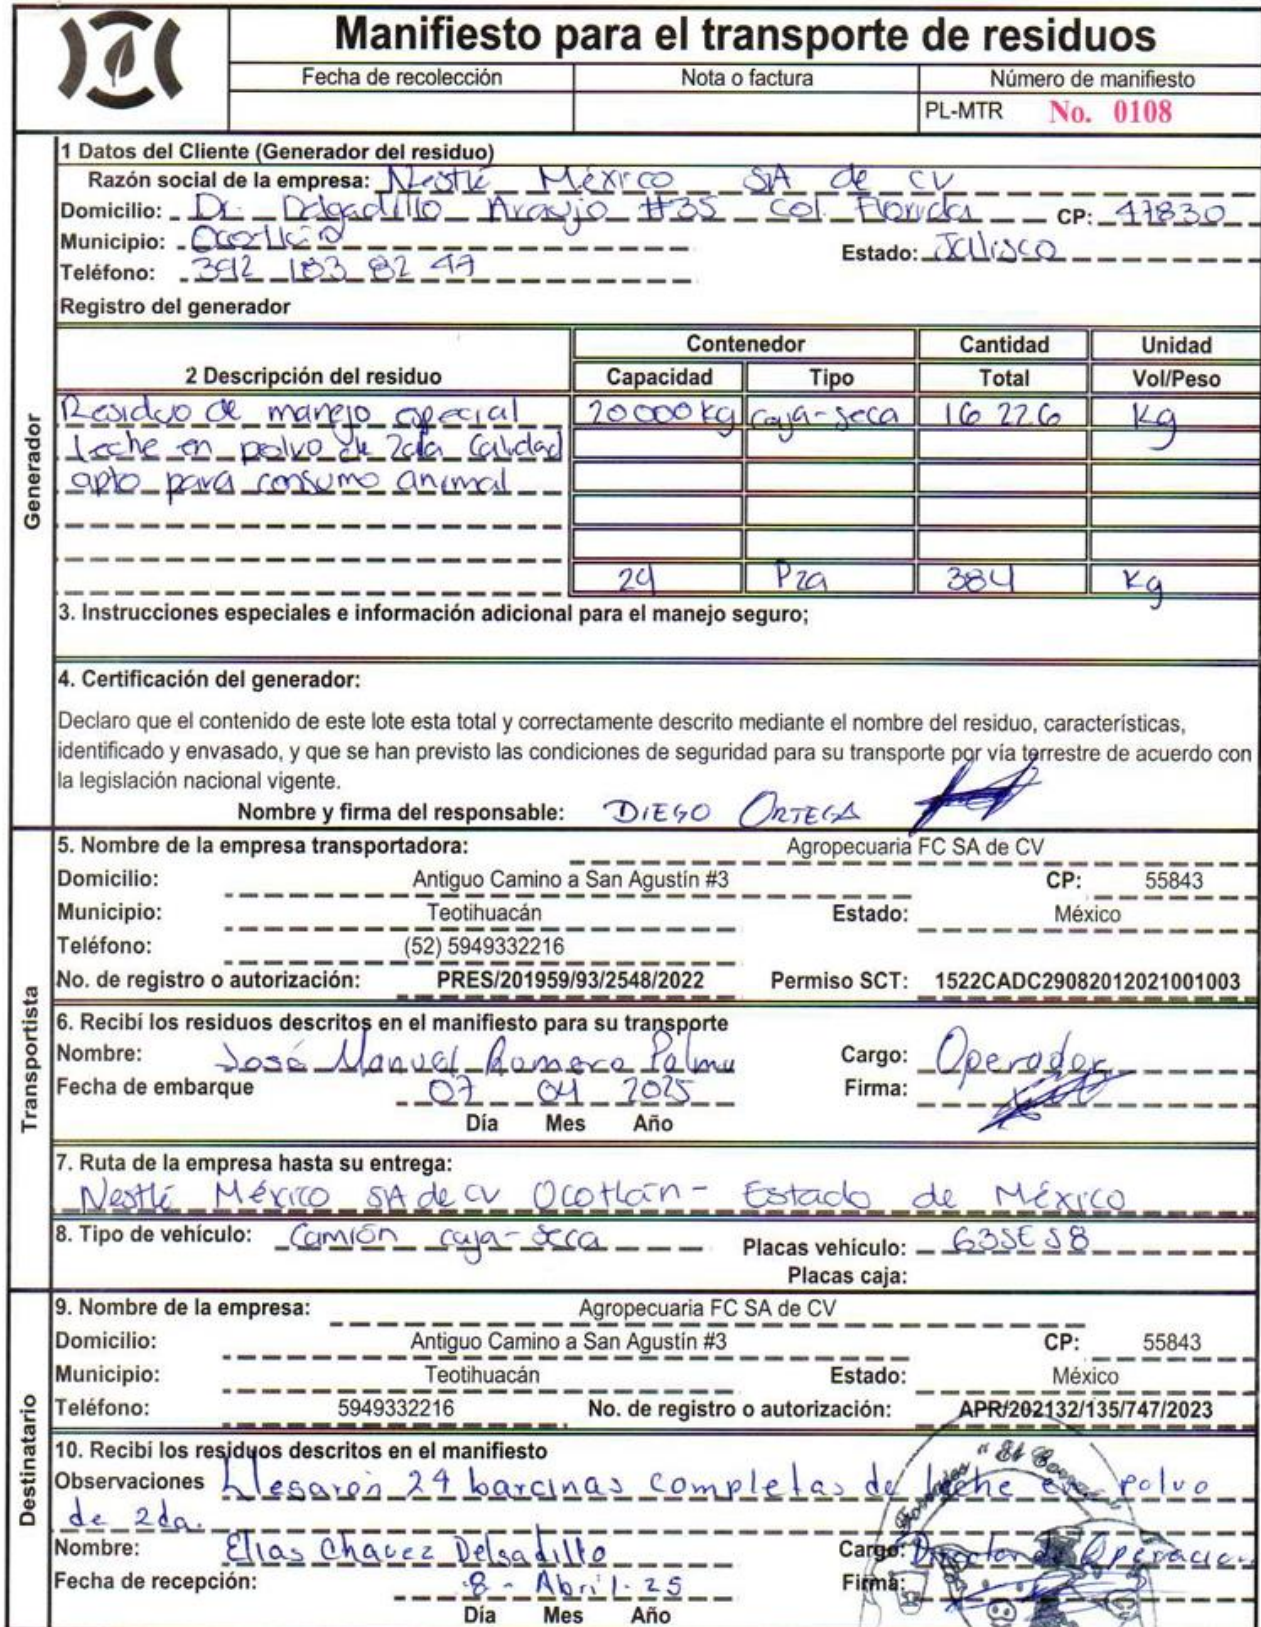 Manifiesto para el transporte de residuos
Fecha de recolección Nota o factura Número de manifiesto
PL-MTR No. 0108
1 Datos del Cliente (Generador del residuo)
Razón social de la empresa: Nestlé México SA de CV
Domicilio: Dr. Delgadillo Araujo #35 Col. Florida CP: 47830
Municipio: Ocotlán Estado: Jalisco
Teléfono: 392 183 82 49
Registro del generador
Contenedor Cantidad Unidad
2 Descripción del residuo Capacidad Tipo Total Vol/Peso
Residuo de manejo especial 20000 kg caja-seca 16 226 Kg
Leche en polvo de 2da Calidad
apto para consumo animal
24 Pza 384 Kg
3. Instrucciones especiales e información adicional para el manejo seguro;
4. Certificación del generador:
Declaro que el contenido de este lote esta total y correctamente descrito mediante el nombre del residuo, características,
identificado y envasado, y que se han previsto las condiciones de seguridad para su transporte por vía terrestre de acuerdo con
la legislación nacional vigente.
Nombre y firma del responsable: DIEGO ORTEGA
Generador
5. Nombre de la empresa transportadora: Agropecuaria FC SA de CV
Domicilio: Antiguo Camino a San Agustín #3 CP: 55843
Municipio: Teotihuacán Estado: México
Teléfono: (52) 5949332216
No. de registro o autorización: PRES/201959/93/2548/2022 Permiso SCT: 1522CADC29082012021001003
6. Recibí los residuos descritos en el manifiesto para su transporte
Nombre: José Manuel Romero Palma Cargo: Operador
Fecha de embarque 07 04 2025 Firma:
Día Mes Año
7. Ruta de la empresa hasta su entrega:
Nestlé México SA de CV Ocotlán - Estado de México
8. Tipo de vehículo: Camión caja-seca Placas vehículo: 63SESS8
Placas caja:
Transportista
9. Nombre de la empresa: Agropecuaria FC SA de CV
Domicilio: Antiguo Camino a San Agustín #3 CP: 55843
Municipio: Teotihuacán Estado: México
Teléfono: 5949332216 No. de registro o autorización: APR/202132/135/747/2023
10. Recibí los residuos descritos en el manifiesto
Observaciones Llegaron 24 barcinas completas de leche en polvo
de 2da.
Nombre: Elias Chavez Delgadillo Cargo: Director de Operacion
Fecha de recepción: 8 - Abril - 25 Firma:
Día Mes Año
Destinatario